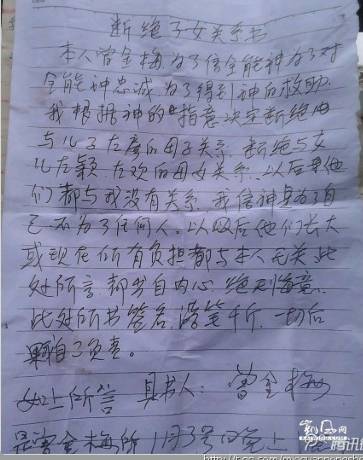 断绝子女关系书
本人曾金梅为了信全能神为了对
全能神忠诚为了得到神的救助
我根据神的"指意决定断绝与
与儿子左彦的母子关系.断绝与女
儿左颖左欢的母女关系.以后
们都与我没有关系我信神是为了自
己不为了任何人.以后他们长大
或现在所有负担都与本人无关此
处所言都出自内心绝无悔意.
此处所书签名落笔千斤.一切后
果自己负责.
以上所言 具书人: 曾金梅
是曾金梅所 11月3号晚上
腾讯